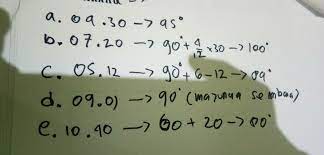 a. 09.30 → 95°
b. 07.20 → 90° + 4/12 × 30 → 100°
c. 05.12 → 90° + 6 - 12 → 89°
d. 09.01 → 90°
e. 10.40 → 60 + 20 → 80°